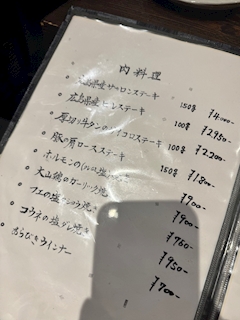 肉料理
広島県産サーロインステーキ 150g ¥4,000-
広島県産ヒレステーキ 100g ¥2,950-
厚切り牛タンサイコロステーキ 100g ¥2,200-
豚の肩ロースステーキ 150g ¥1,800-
ホルモンの塩 ¥900-
大山鶏のガーリック焼 ¥900-
フエの塩 焼 ¥750-
コウネの塩ダレ焼き ¥950-
あらびきウインナー ¥700-